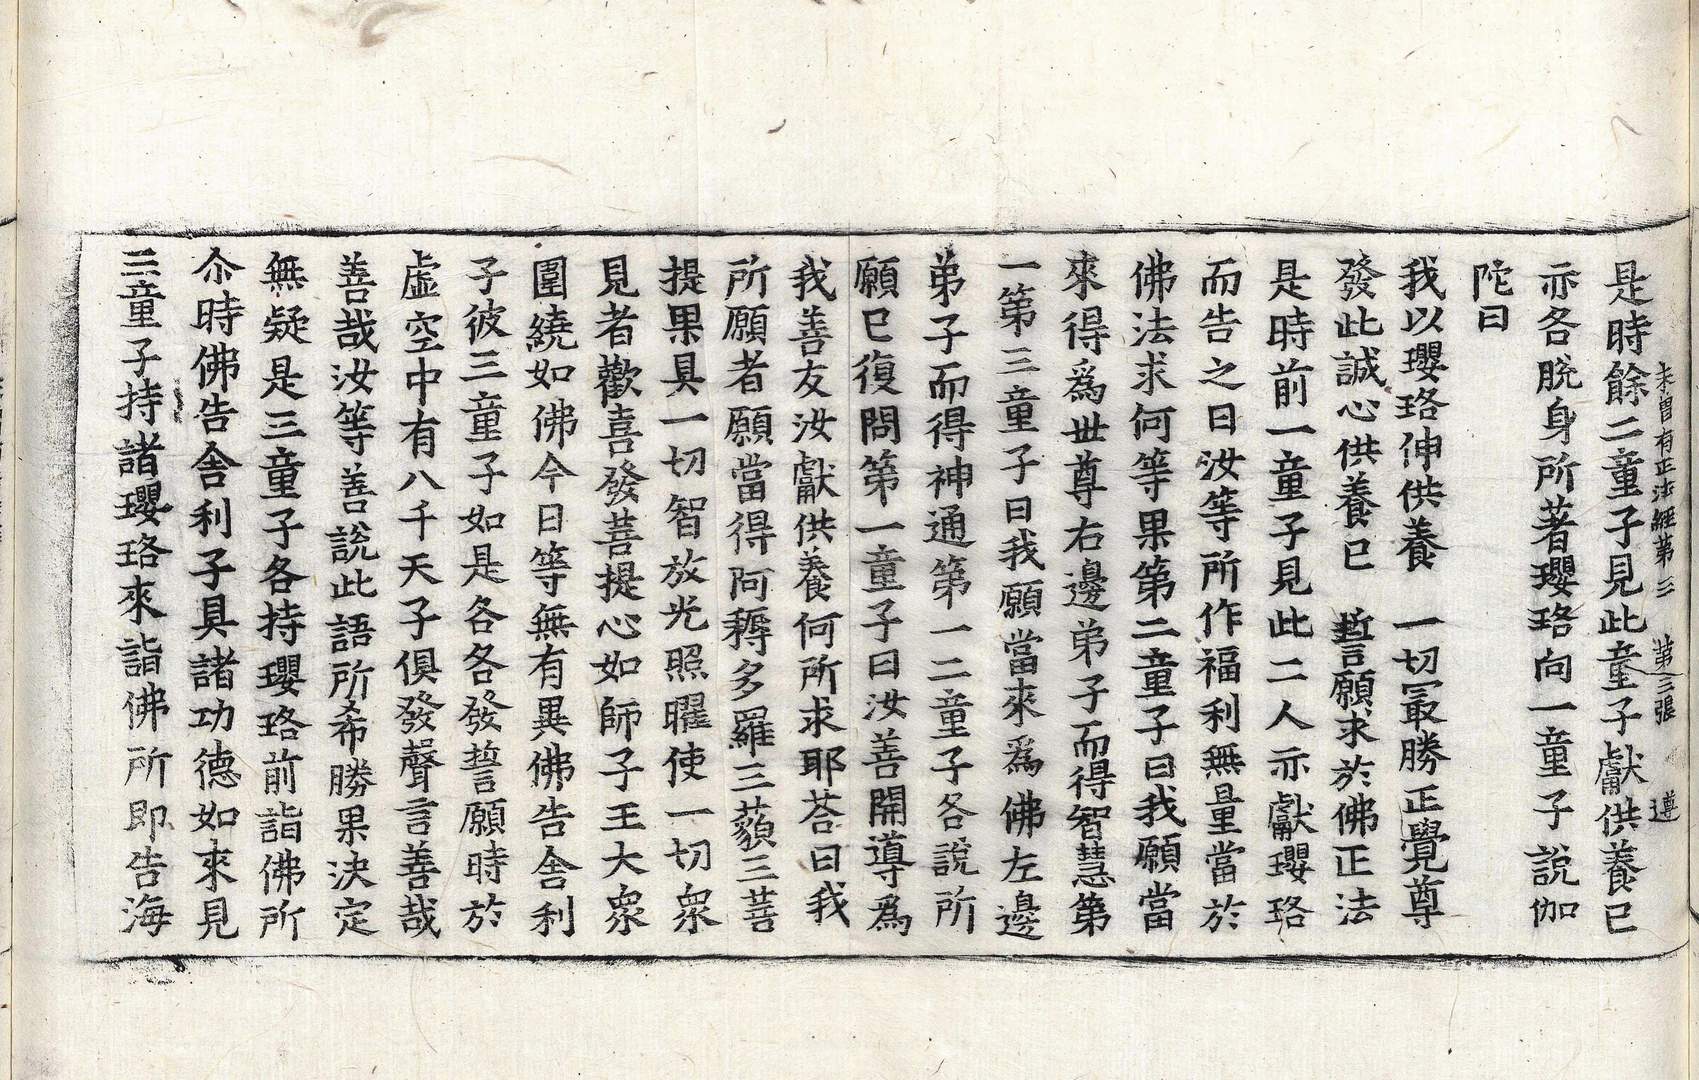 未曾有正法經第三　第三張　遵
是時餘二童子見此童子獻供養已
亦各脫身所著瓔珞向一童子說伽
陀曰
我以瓔珞伸供養　一切冣勝正覺尊
發此誠心供養已　誓願求於佛正法
是時前一童子見此二人亦獻瓔珞
而告之曰汝等所作福利無量當於
佛法求何等果第二童子曰我願當
來得爲世尊右邊弟子而得智慧第
一第三童子曰我願當來爲佛左邊
弟子而得神通第一二童子各說所
願已復問第一童子曰汝善開導爲
我善友汝獻供養何所求耶荅曰我
所願者願當得阿耨多羅三藐三菩
提果具一切智放光照曜使一切衆
見者歡喜發菩提心如師子王大衆
圍繞如佛今日等無有異佛告舍利
子彼三童子如是各各發誓願時於
虛空中有八千天子俱發聲言善哉
善哉汝等善說此語所希勝果決定
無疑是三童子各持瓔珞前詣佛所
尒時佛告舍利子具諸功德如來見
三童子持諸瓔珞來詣佛所即告海